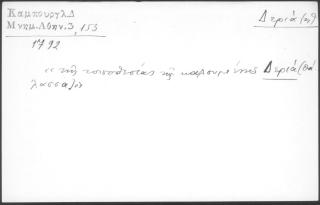 Καμπουργλ.Δ
Μνημ.Αθην.3, 153
Δεριά (ἡ)
1792
“ τῆς τοποθεσίας τῆς καλουμένης Δεριά (θά
λασσα)”